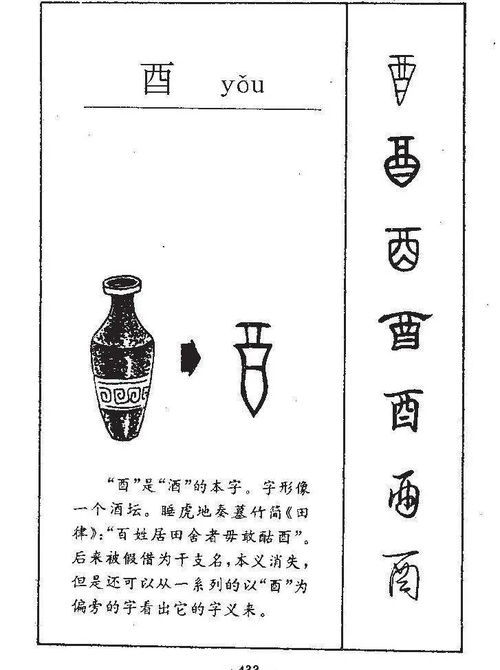 酉 yǒu
“酉”是“酒”的本字。字形像
一个酒坛。睡虎地秦墓竹简《田
律》:“百姓居田舍者毋敢酤酉”。
后来被假借为干支名,本义消失,
但是还可以从一系列的以“酉”为
偏旁的字看出它的字义来。